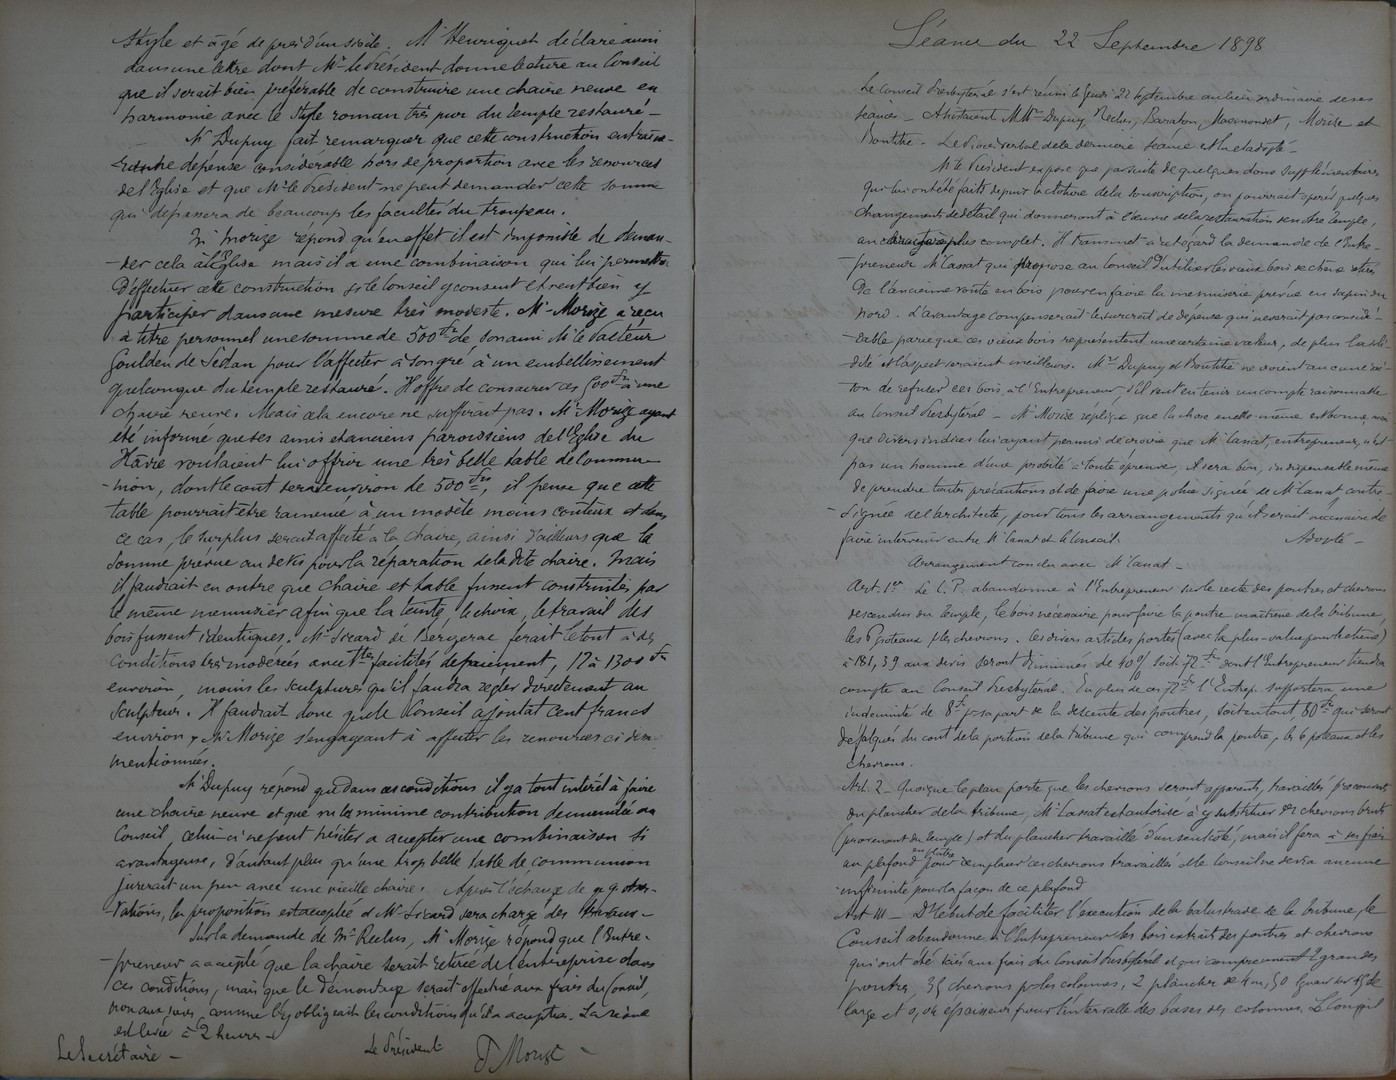 style et âgé de près d'un siècle. Mr Henriquet déclare aussi
dans une lettre dont Mr le Président donne lecture au Conseil
que il serait bien préférable de construire une chaire neuve en
harmonie avec le style roman très pur du temple restauré –
– Mr Dupuy fait remarquer que cette construction entraîne-
dépense considérable hors de proportion avec les ressources
de l'Eglise et que Mr le Président ne peut demander cette somme
qui dépassera de beaucoup les facultés du troupeau.
Mr Morize répond qu'en effet il est impossible de deman-
-der cela à l'Eglise mais il a une combinaison qui lui permettra
d'effectuer cette construction si le Conseil y consent et veut bien y
participer dans une mesure très modeste. Mr Morize a reçu
à titre personnel une somme de 500 frs de son ami Mr le Pasteur
Goulden de Sedan pour l'affecter à son gré à un embellissement
quelconque du temple restauré. Il offre de consacrer ces 500 frs à une
chaire neuve. Mais cela encore ne suffirait pas. Mr Morize ayant
été informé que ses amis et anciens paroissiens de l'Eglise du
Hâvre voulaient lui offrir une très belle table de Commu-
-nion, dont le coût serait environ de 500 frs, il pense que cette
table pourrait être ramenée à un modèle moins coûteux et dans
ce cas, le surplus serait affecté à la Chaire, ainsi d'ailleurs que la
somme prévue au devis pour la réparation de la dite chaire. Mais
il faudrait en outre que Chaire et table fussent construites par
le même menuisier afin que la teinte, le choix, le travail des
bois fussent identiques. Mr Sicard de Bergerac ferait le tout à des
conditions très modérées avec ttes facilités de paiement, 12 à 1300 frs
environ, moins les sculptures qu'il faudra régler directement au
sculpteur. Il faudrait donc que le Conseil ajoutât cent francs
environ, Mr Morize s'engageant à affecter les ressources ci dessus
mentionnées.
Mr Dupuy répond que dans ces conditions il y a tout intérêt à faire
une chaire neuve et que vu la minime contribution demandée au
Conseil, celui-ci ne peut hésiter à accepter une combinaison si
avantageuse, d'autant plus qu'une trop belle table de communion
jurerait un peu avec une vieille chaire. Après l'échange de qq. obser-
vations, la proposition est acceptée et Mr Sicard sera chargé des travaux –
Sur la demande de Mr Reclus, Mr Morize répond que l'Entre-
-preneur a accepté que la chaire serait retirée de l'entreprise dans
ces conditions, mais que le démontage serait effectué aux frais du Conseil,
non aux siens, comme l'y obligeait les conditions qu'il a acceptées. La séance
est levée à 2 heures –
Le Secrétaire – Le Président J Morize –
Séance du 22 Septembre 1898
Le Conseil Presbytéral s'est réuni le Jeudi 22 Septembre au lieu ordinaire de ses
séances – Assistaient MMrs Dupuy, Reclus, Baraton, Morize et
Bontitie. – Le Procès verbal de la dernière séance est lu et adopté –
Mr le Président expose que par suite de quelques dons supplémentaires
qui lui ont été faits depuis la clôture de la souscription, on pourrait opérer quelques
changements de détail qui donneront à l'œuvre de la restauration de notre temple,
un caractère plus complet. Il transmet à cet égard la demande de l'Entre-
-preneur Mr Cassat qui propose au Conseil d'utiliser les vieux bois de chêne
de l'ancienne voûte en bois pour en faire la menuiserie prévue en sapin du
Nord. L'avantage compenserait le surcroît de dépense qui ne serait pas considé-
-rable parce que ces vieux bois représentent une certaine valeur, de plus la soli-
dité et l'aspect seraient meilleurs. Mrs Dupuy et Bontitie ne voient aucune rai-
son de refuser ces bois à l'Entrepreneur s'il veut en tenir un compte raisonnable
au Conseil Presbytéral – Mr Morize réplique que la chose en elle-même est bonne, mais
que divers indices lui ayant permis de croire que Mr Cassat, entrepreneur, n'est
pas un homme d'une probité à toute épreuve, il sera bon, indispensable même
de prendre toutes précautions et de faire une police signée de Mr Cassat contre-
-signée de l'architecte, pour tous les arrangements qu'il serait nécessaire de
faire intervenir entre Mr Cassat et le Conseil. Adopté –
Arrangement conclu avec Mr Cassat –
Art. 1er Le C.P. abandonne à l'Entrepreneur sur le reste des poutres et chevrons
descendus du Temple, le bois nécessaire pour faire la poutre maîtresse de la tribune,
les 6 poteaux & les chevrons. Les divers articles portés (avec la plus-value pour le chêne)
à 181,39 aux devis seront diminués de 40% soit 72 frs dont l'Entrepreneur tiendra
compte au Conseil Presbytéral. En plus de ces 72 frs l'Entrep. supportera une
indemnité de 8 frs pr sa part de la descente des poutres, soit en tout, 80 frs qui seront
défalqués du coût de la portion de la tribune qui comprend la poutre, les 6 poteaux et les
chevrons.
Art. 2 – Quoique le plan porte que les chevrons seront apparents, travaillés
du plancher de la tribune, Mr Cassat est autorisé à y substituer des chevrons bruts
(provenant du temple) et du plancher travaillé d'un seul côté, mais il fera à ses frais
un plafond en plâtre pour remplacer ces chevrons travaillés et le Conseil ne devra aucune
indemnité pour la façon de ce plafond
Art III – Dans le but de faciliter l'exécution de la balustrade de la Tribune, le
Conseil abandonne à l'Entrepreneur les bois extraits des poutres et chevrons
qui ont été sciés aux frais du Conseil Presbytéral et qui comprennent 2 grandes
poutres, 35 chevrons pr les colonnes, 2 planches de 4 m, 50
large et 0,04 épaisseur pour l'intervalle des bases des colonnes. Le Conseil